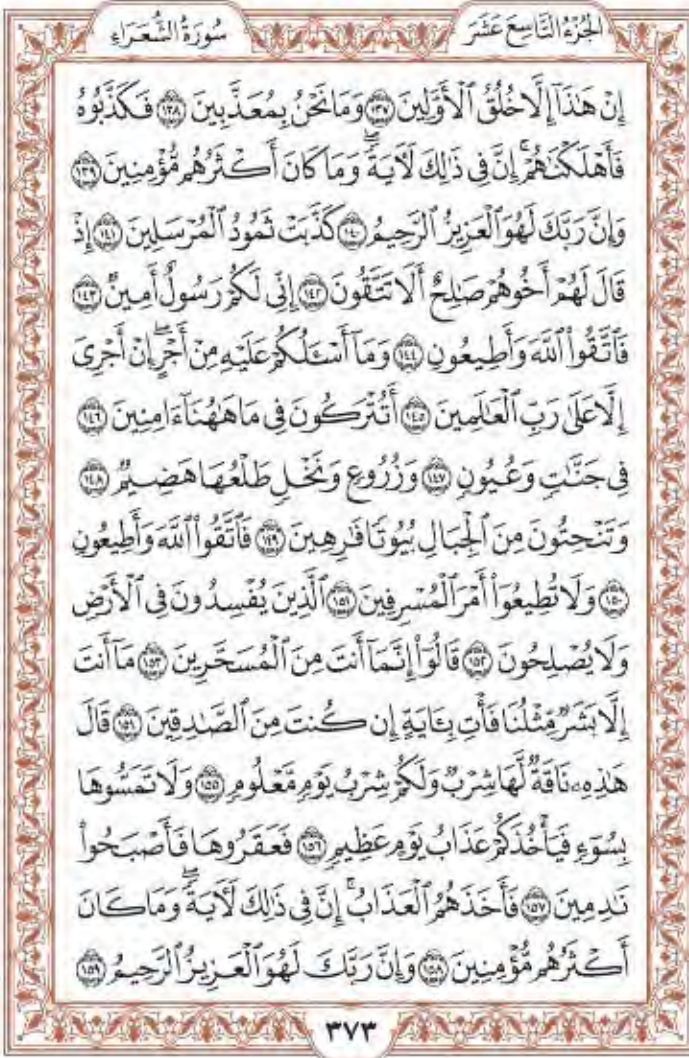 الجُزْءُ التَّاسِعَ عَشَرَ سُورَةُ الشُّعَرَاءِ
إِنْ هَٰذَآ إِلَّا خُلُقُ ٱلْأَوَّلِينَ ١٣٧ وَمَا نَحْنُ بِمُعَذَّبِينَ ١٣٨ فَكَذَّبُوهُ
فَأَهْلَكْنَٰهُمْۚ إِنَّ فِى ذَٰلِكَ لَءَايَةًۖ وَمَا كَانَ أَكْثَرُهُم مُّؤْمِنِينَ ١٣٩
وَإِنَّ رَبَّكَ لَهُوَ ٱلْعَزِيزُ ٱلرَّحِيمُ ١٤٠ كَذَّبَتْ ثَمُودُ ٱلْمُرْسَلِينَ ١٤١ إِذْ
قَالَ لَهُمْ أَخُوهُمْ صَٰلِحٌ أَلَا تَتَّقُونَ ١٤٢ إِنِّى لَكُمْ رَسُولٌ أَمِينٌ ١٤٣
فَٱتَّقُوا۟ ٱللَّهَ وَأَطِيعُونِ ١٤٤ وَمَآ أَسْـَٔلُكُمْ عَلَيْهِ مِنْ أَجْرٍۖ إِنْ أَجْرِىَ
إِلَّا عَلَىٰ رَبِّ ٱلْعَٰلَمِينَ ١٤٥ أَتُتْرَكُونَ فِى مَا هَٰهُنَآ ءَامِنِينَ ١٤٦
فِى جَنَّٰتٍ وَعُيُونٍ ١٤٧ وَزُرُوعٍ وَنَخْلٍ طَلْعُهَا هَضِيمٌ ١٤٨
وَتَنْحِتُونَ مِنَ ٱلْجِبَالِ بُيُوتًا فَٰرِهِينَ ١٤٩ فَٱتَّقُوا۟ ٱللَّهَ وَأَطِيعُونِ
١٥٠ وَلَا تُطِيعُوٓا۟ أَمْرَ ٱلْمُسْرِفِينَ ١٥١ ٱلَّذِينَ يُفْسِدُونَ فِى ٱلْأَرْضِ
وَلَا يُصْلِحُونَ ١٥٢ قَالُوٓا۟ إِنَّمَآ أَنتَ مِنَ ٱلْمُسَحَّرِينَ ١٥٣ مَآ أَنتَ
إِلَّا بَشَرٌ مِّثْلُنَا فَأْتِ بِـَٔايَةٍ إِن كُنتَ مِنَ ٱلصَّٰدِقِينَ ١٥٤ قَالَ
هَٰذِهِۦ نَاقَةٌ لَّهَا شِرْبٌ وَلَكُمْ شِرْبُ يَوْمٍ مَّعْلُومٍ ١٥٥ وَلَا تَمَسُّوهَا
بِسُوٓءٍ فَيَأْخُذَكُمْ عَذَابُ يَوْمٍ عَظِيمٍ ١٥٦ فَعَقَرُوهَا فَأَصْبَحُوا۟
نَٰدِمِينَ ١٥٧ فَأَخَذَهُمُ ٱلْعَذَابُۚ إِنَّ فِى ذَٰلِكَ لَءَايَةًۖ وَمَا كَانَ
أَكْثَرُهُم مُّؤْمِنِينَ ١٥٨ وَإِنَّ رَبَّكَ لَهُوَ ٱلْعَزِيزُ ٱلرَّحِيمُ ١٥٩
٣٧٣